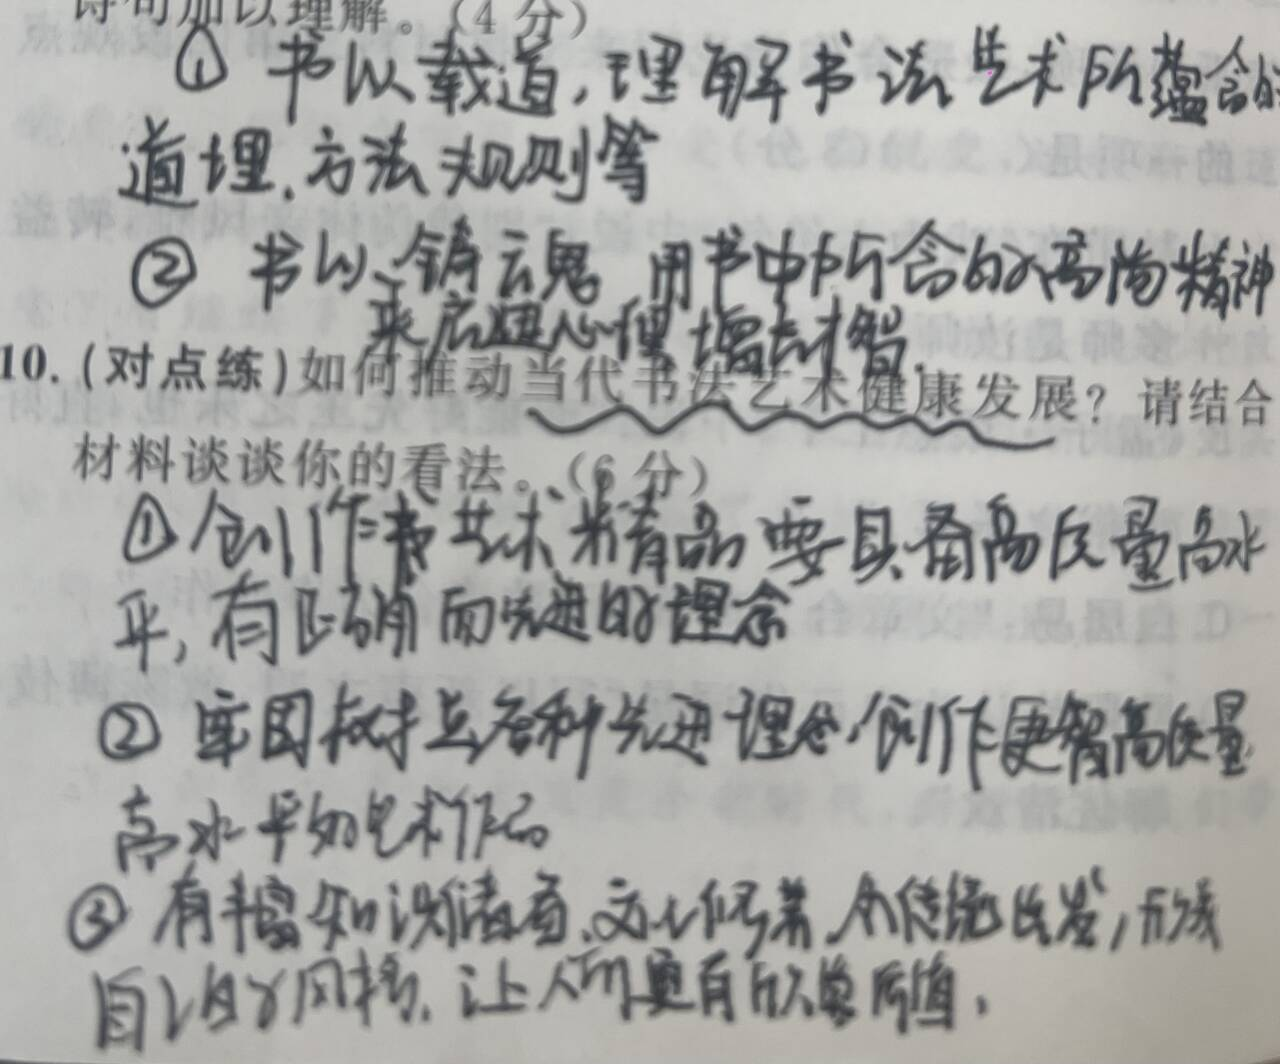 诗句加以理解。(4分)
① 书以载道,理解书法艺术所蕴含的
道理、方法规则等
② 书以铸魂 用书中所含的高尚精神
来启迪心理 增长才智.
10. (对点练)如何推动当代书法艺术健康发展? 请结合
材料谈谈你的看法。(6分)
① 创作 艺术精品 要具备高质量高水
平,有正确而先进的理念
② 牢固树立各种先进理念,创作更 高质量
高水平的艺术作品
③ 有丰富知识储备、文化修养 从传统出发,形成
自己的风格,让人们更有欣赏 .